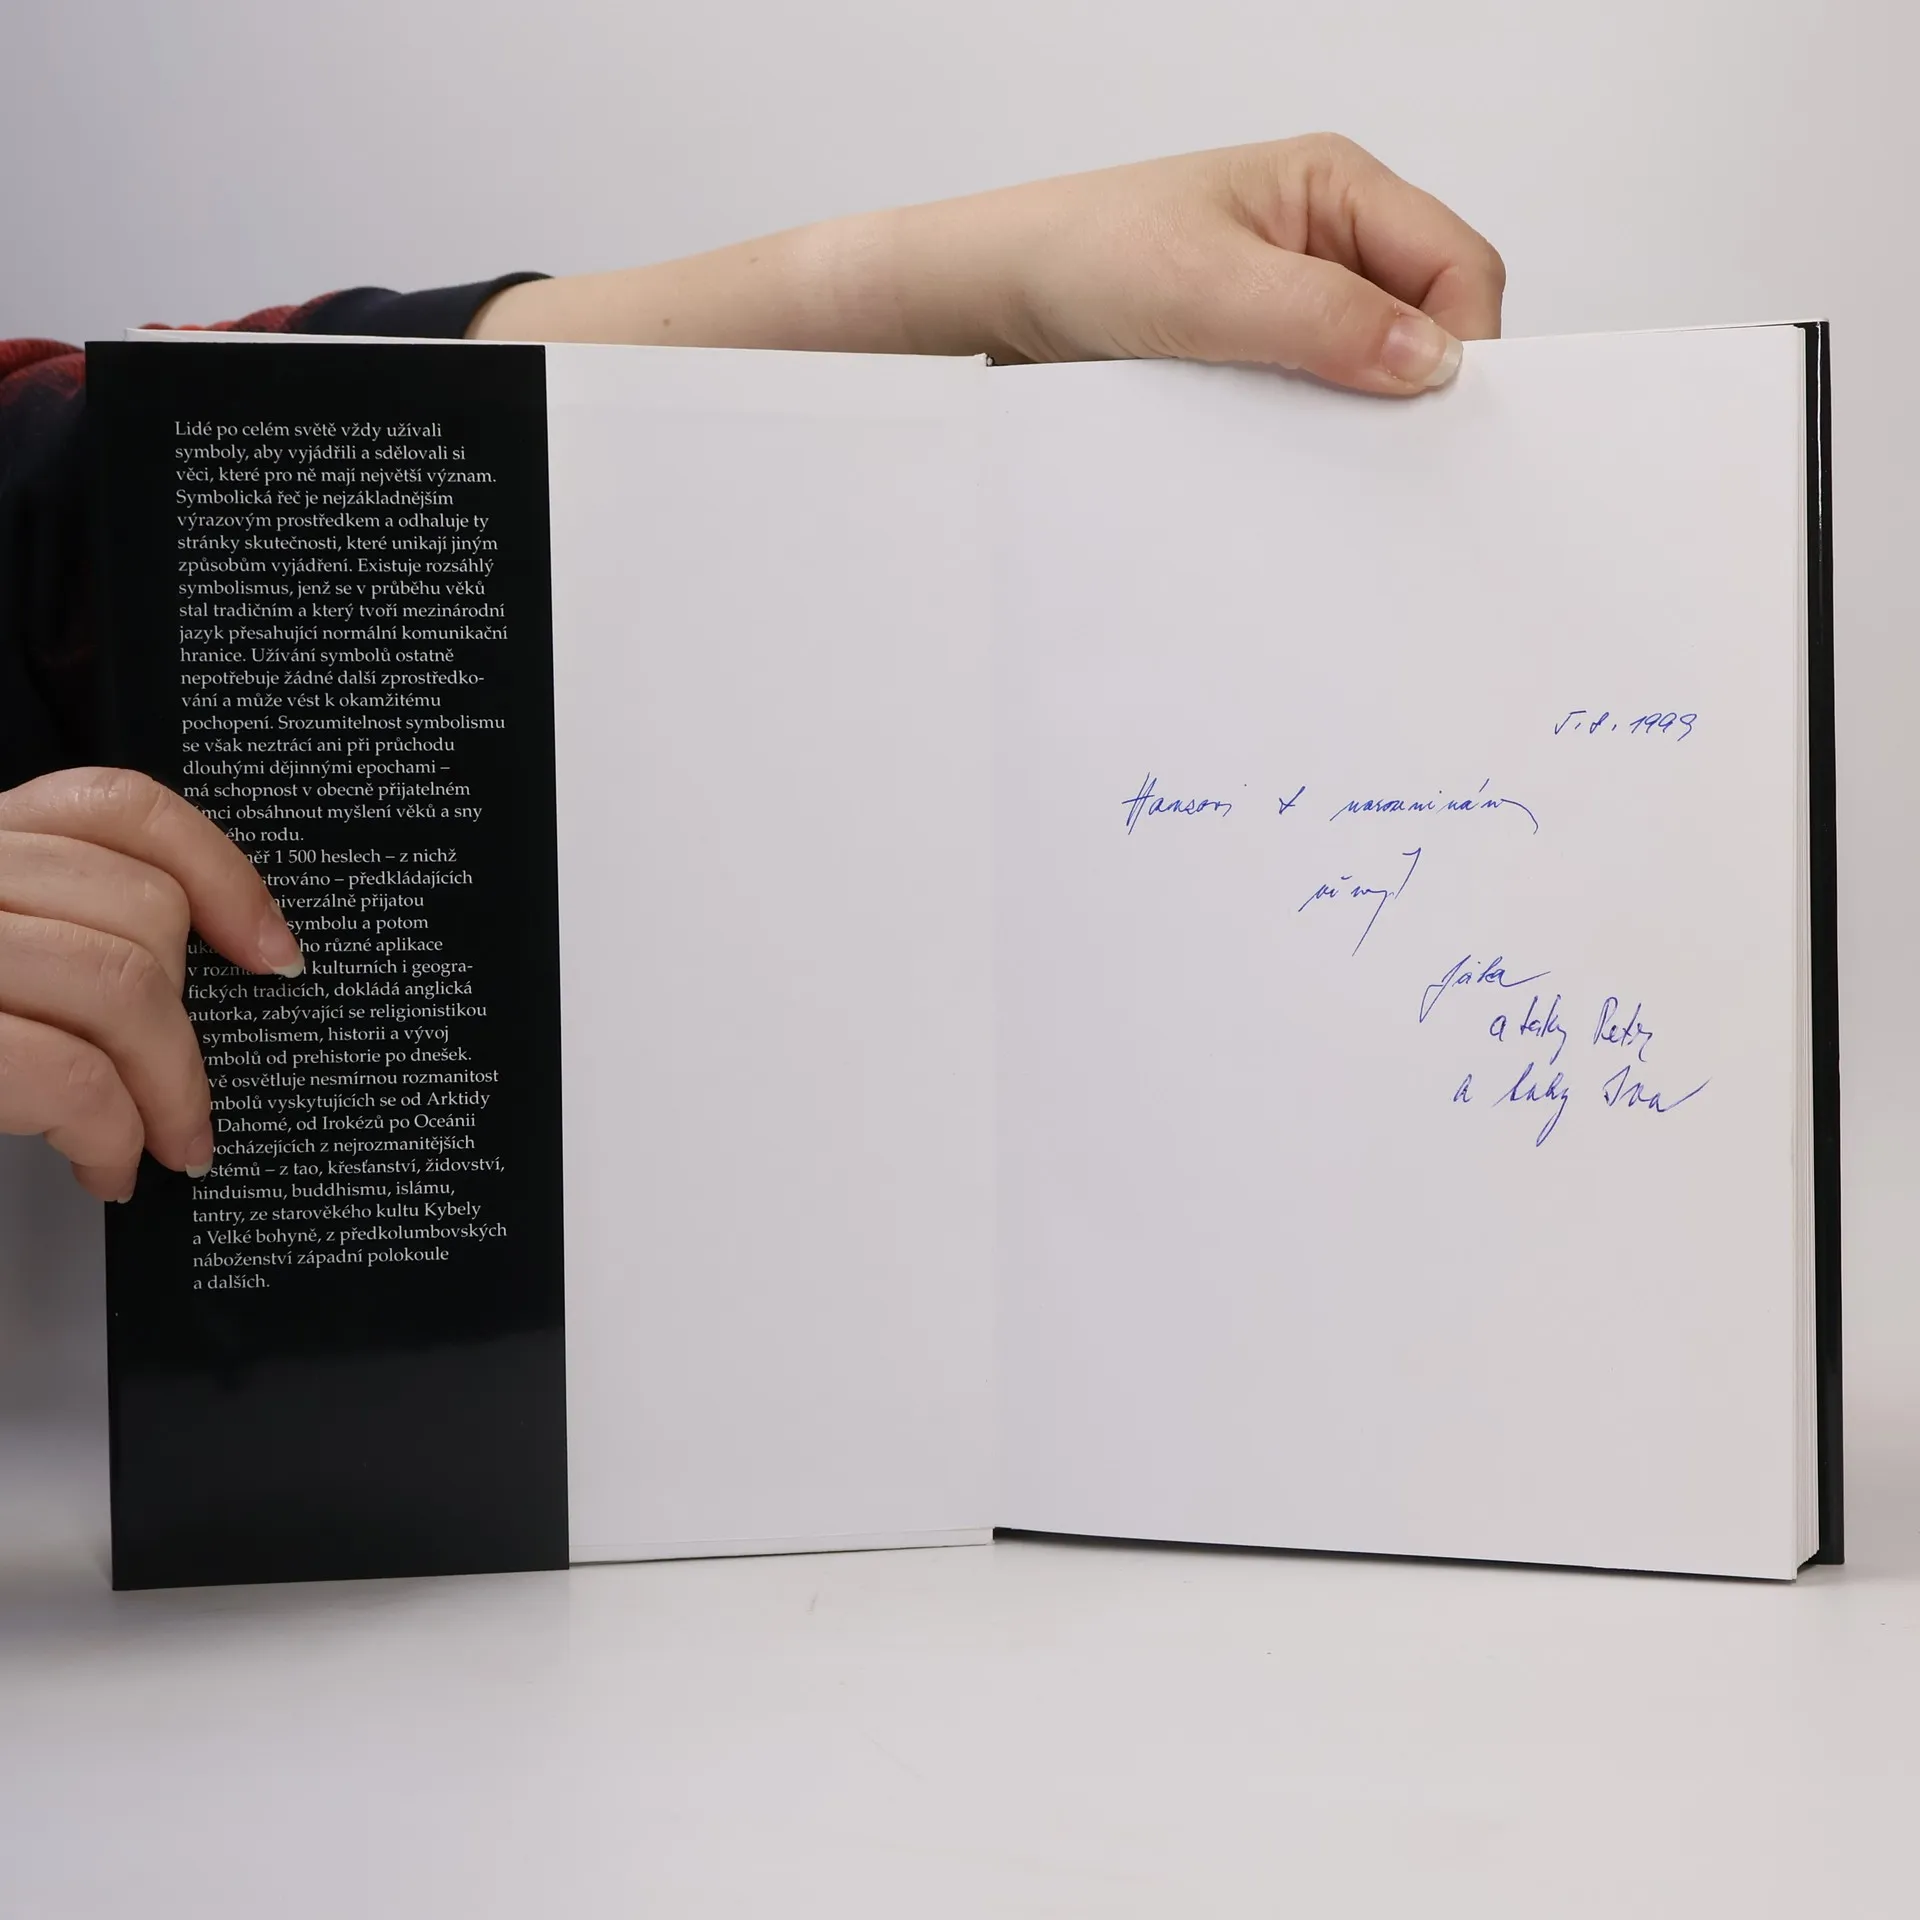 Lidé po celém světě vždy užívali
symboly, aby vyjádřili a sdělovali si
věci, které pro ně mají největší význam.
Symbolická řeč je nejzákladnějším
výrazovým prostředkem a odhaluje ty
stránky skutečnosti, které unikají jiným
způsobům vyjádření. Existuje rozsáhlý
symbolismus, jenž se v průběhu věků
stal tradičním a který tvoří mezinárodní
jazyk přesahující normální komunikační
hranice. Užívání symbolů ostatně
nepotřebuje žádné další zprostředko-
vání a může vést k okamžitému
pochopení. Srozumitelnost symbolismu
se však neztrácí ani při průchodu
dlouhými dějinnými epochami –
má schopnost v obecně přijatelném
mci obsáhnout myšlení věků a sny
ého rodu.
měř 1 500 heslech – z nichž
strováno – předkládajících
niverzálně přijatou
symbolu a potom
ho různé aplikace
kulturních i geogra-
fických tradicích, dokládá anglická
autorka, zabývající se religionistikou
symbolismem, historii a vývoj
mbolů od prehistorie po dnešek.
vě osvětluje nesmírnou rozmanitost
mbolů vyskytujících se od Arktidy
Dahomé, od Irokézů po Oceánii
pocházejících z nejrozmanitějších
stémů – z tao, křesťanství, židovství,
hinduismu, buddhismu, islámu,
tantry, ze starověkého kultu Kybely
a Velké bohyně, z předkolumbovských
náboženství západní polokoule
a dalších.
5. 8. 1999
Hansovi k narozeninám
a taky Petr
a taky Iva